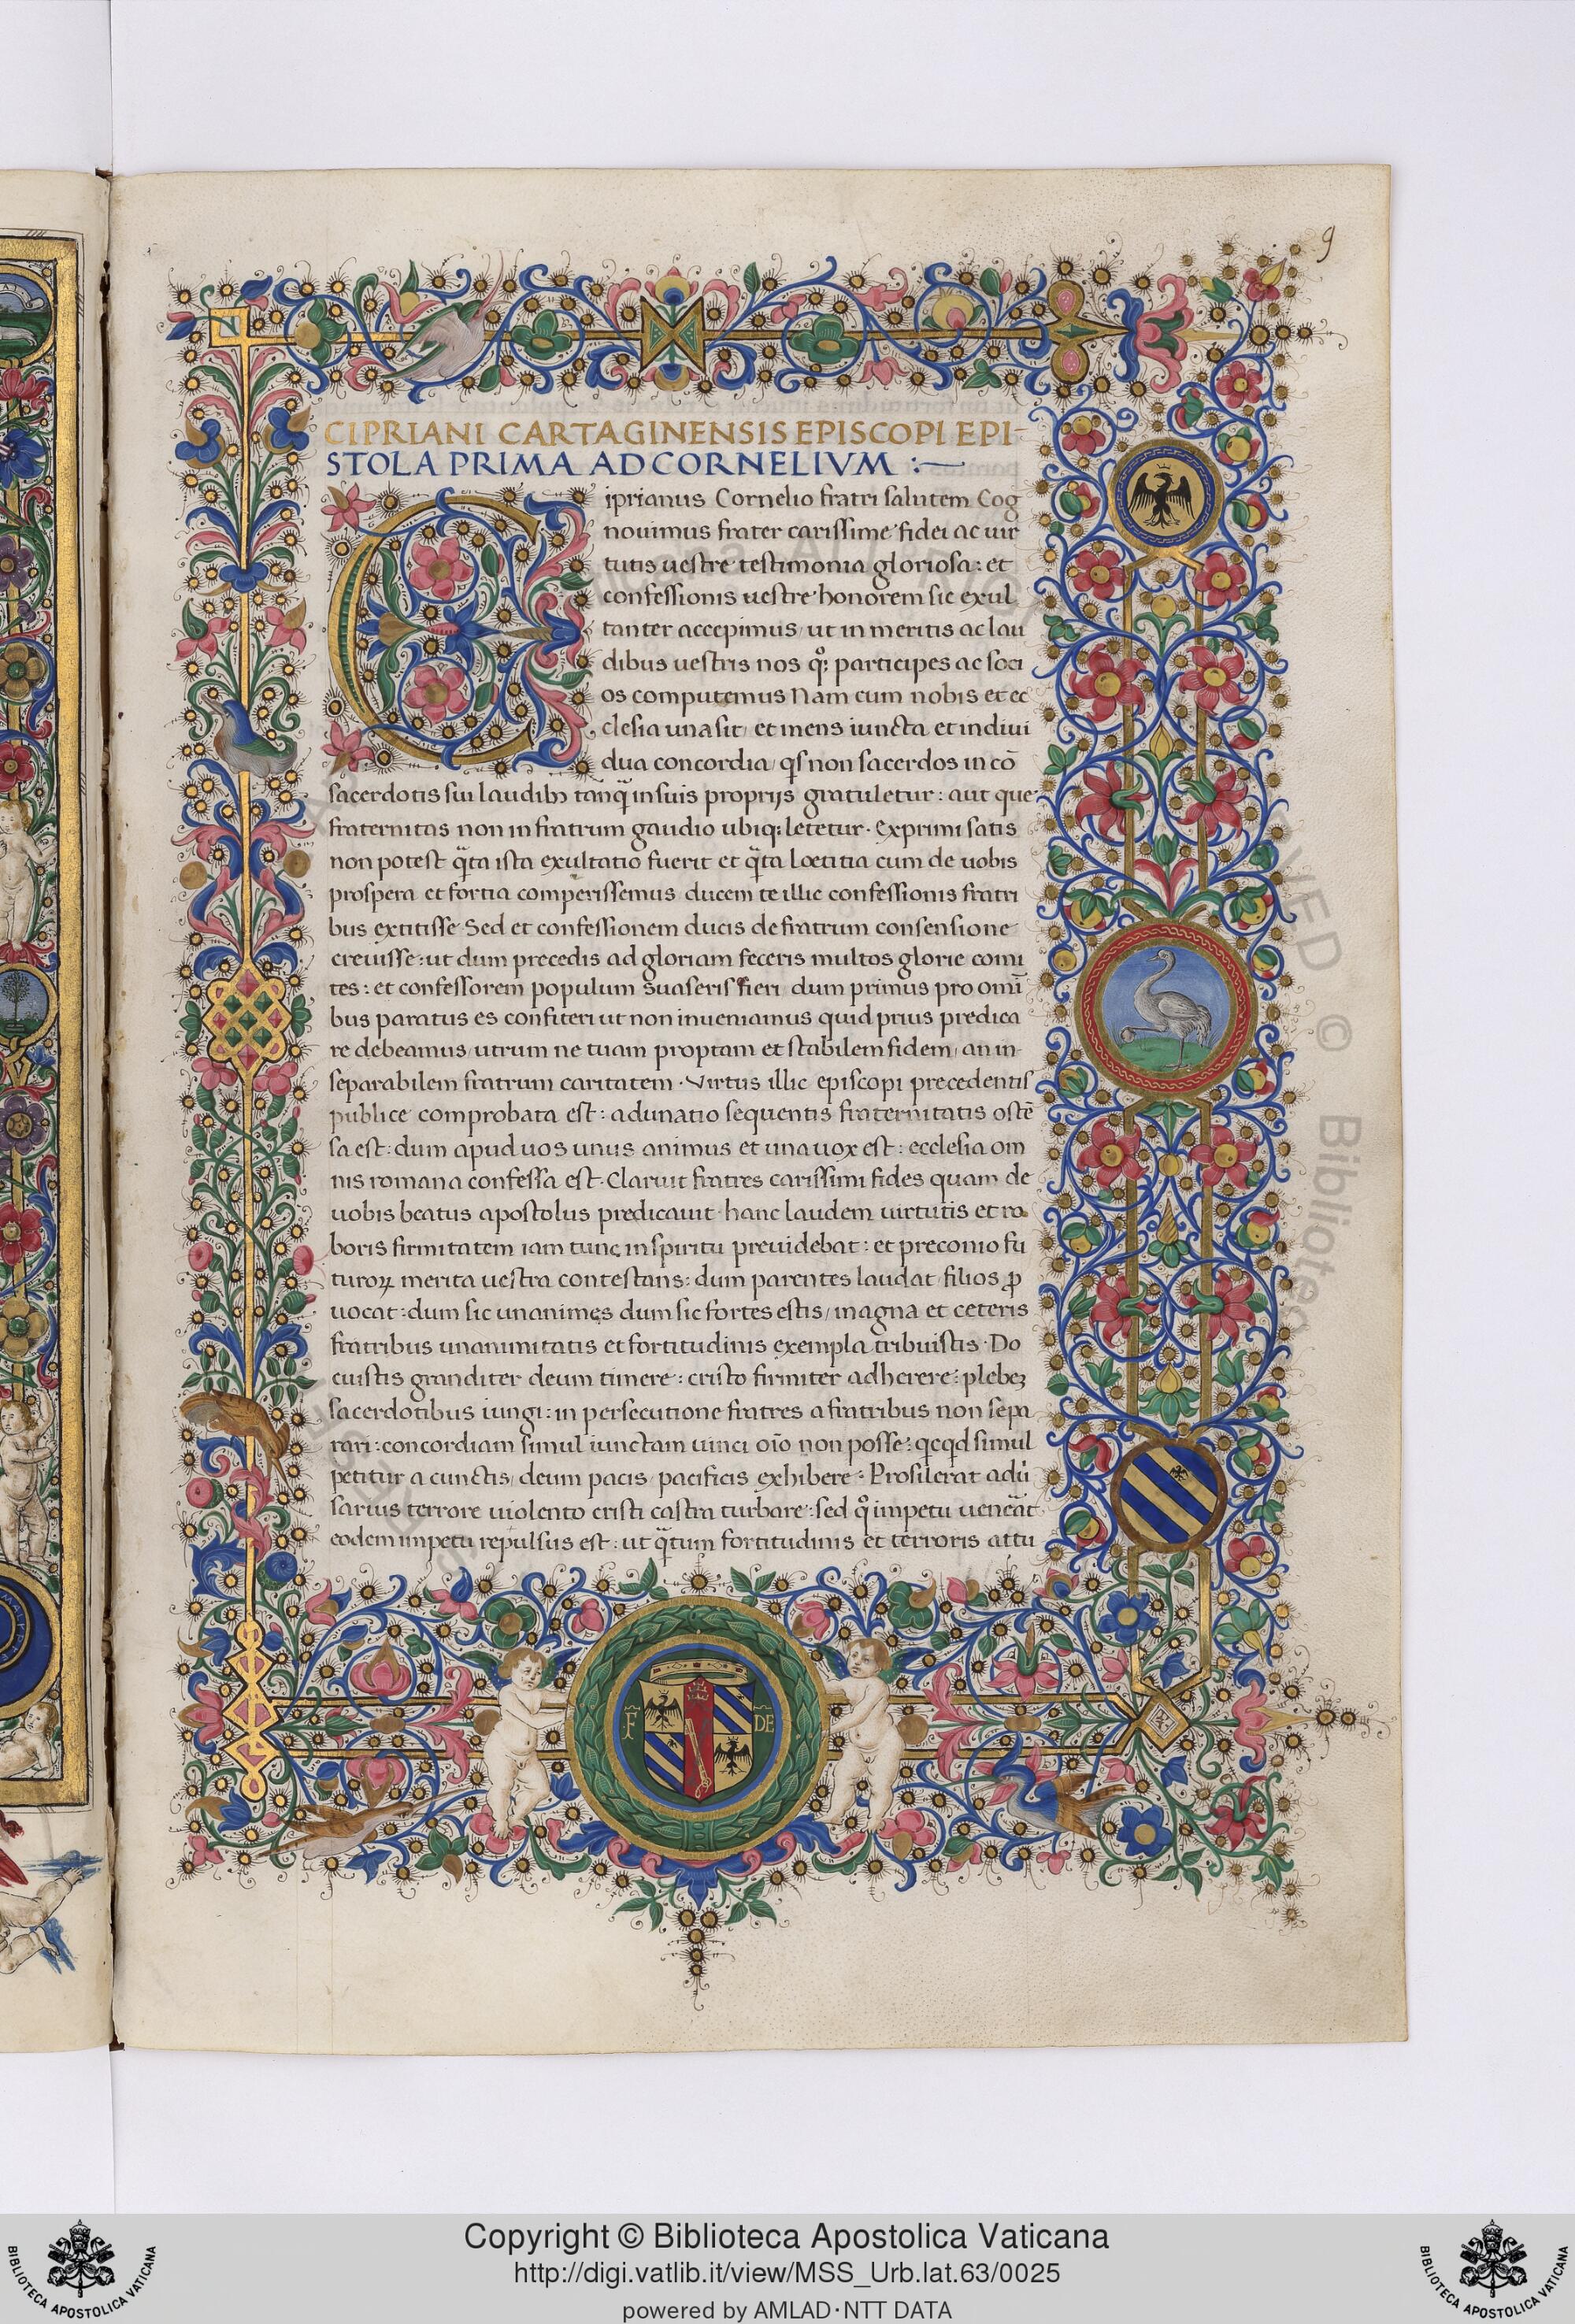 9
CIPRIANI CARTAGINENSIS EPISCOPI EPI-
STOLA PRIMA AD CORNELIVM :—
Ciprianus Cornelio fratri salutem Cog
nouimus frater carissime fidei ac uir
tutis uestre testimonia gloriosa : et
confessionis uestre honorem sic exul
tanter accepimus / ut in meritis ac lau
dibus uestris nos qͦꝫ participes ac soci
os computemus Nam cum nobis et ec
clesia una sit / et mens iuncta et indiui
dua concordia / qͥs non sacerdos in cō
sacerdotis sui laudibꝫ tanq̄ in suis proprijs gratuletur : aut que
fraternitas non in fratrum gaudio ubiqꝫ letetur . Exprimi satis
non potest qͣta ista exultatio fuerit et qͣta lœtitia cum de uobis
prospera et fortia comperissemus ducem te illic confessionis fratri
bus extitisse Sed et confessionem ducis de fratrum consensione
creuisse : ut dum precedis ad gloriam feceris multos glorie comi
tes : et confessorem populum suaseris fieri dum primus pro omī
bus paratus es confiteri ut non inueniamus quid prius predica
re debeamus / utrum ne tuam proptam et stabilem fidem / an in-
separabilem fratrum caritatem . Virtus illic episcopi precedentis
publice comprobata est : adunatio sequentis fraternitatis ostē
sa est : dum apud uos unus animus et una uox est : ecclesia om
nis romana confessa est . Claruit fratres carissimi fides quam de
uobis beatus apostolus predicauit . hanc laudem uirtutis et ro
boris firmitatem iam tunc in spiritu preuidebat : et preconio fu
turoꝝ merita uestra contestans : dum parentes laudat filios ꝓ
uocat : dum sic unanimes dum sic fortes estis / magna et ceteris
fratribus unanimitatis et fortitudinis exempla tribuistis . Do
cuistis granditer deum timere : cristo firmiter adherere : plebeꝫ
sacerdotibus iungi : in persecutione fratres a fratribus non sepa
rari : concordiam simul iunctam uinci oīo non posse : qͥcqͥd simul
petitur a cunctis / deum pacis / pacificis exhibere : Prosilerat adū
sarius terrore uiolento cristi castra turbare : sed qͦ impetu uenerat
eodem impetu repulsus est : ut qͣtum fortitudinis et terroris attu
F DE
Copyright © Biblioteca Apostolica Vaticana
http://digi.vatlib.it/view/MSS_Urb.lat.63/0025
powered by AMLAD·NTT DATA
BIBLIOTECA APOSTOLICA VATICANA
BIBLIOTECA APOSTOLICA VATICANA